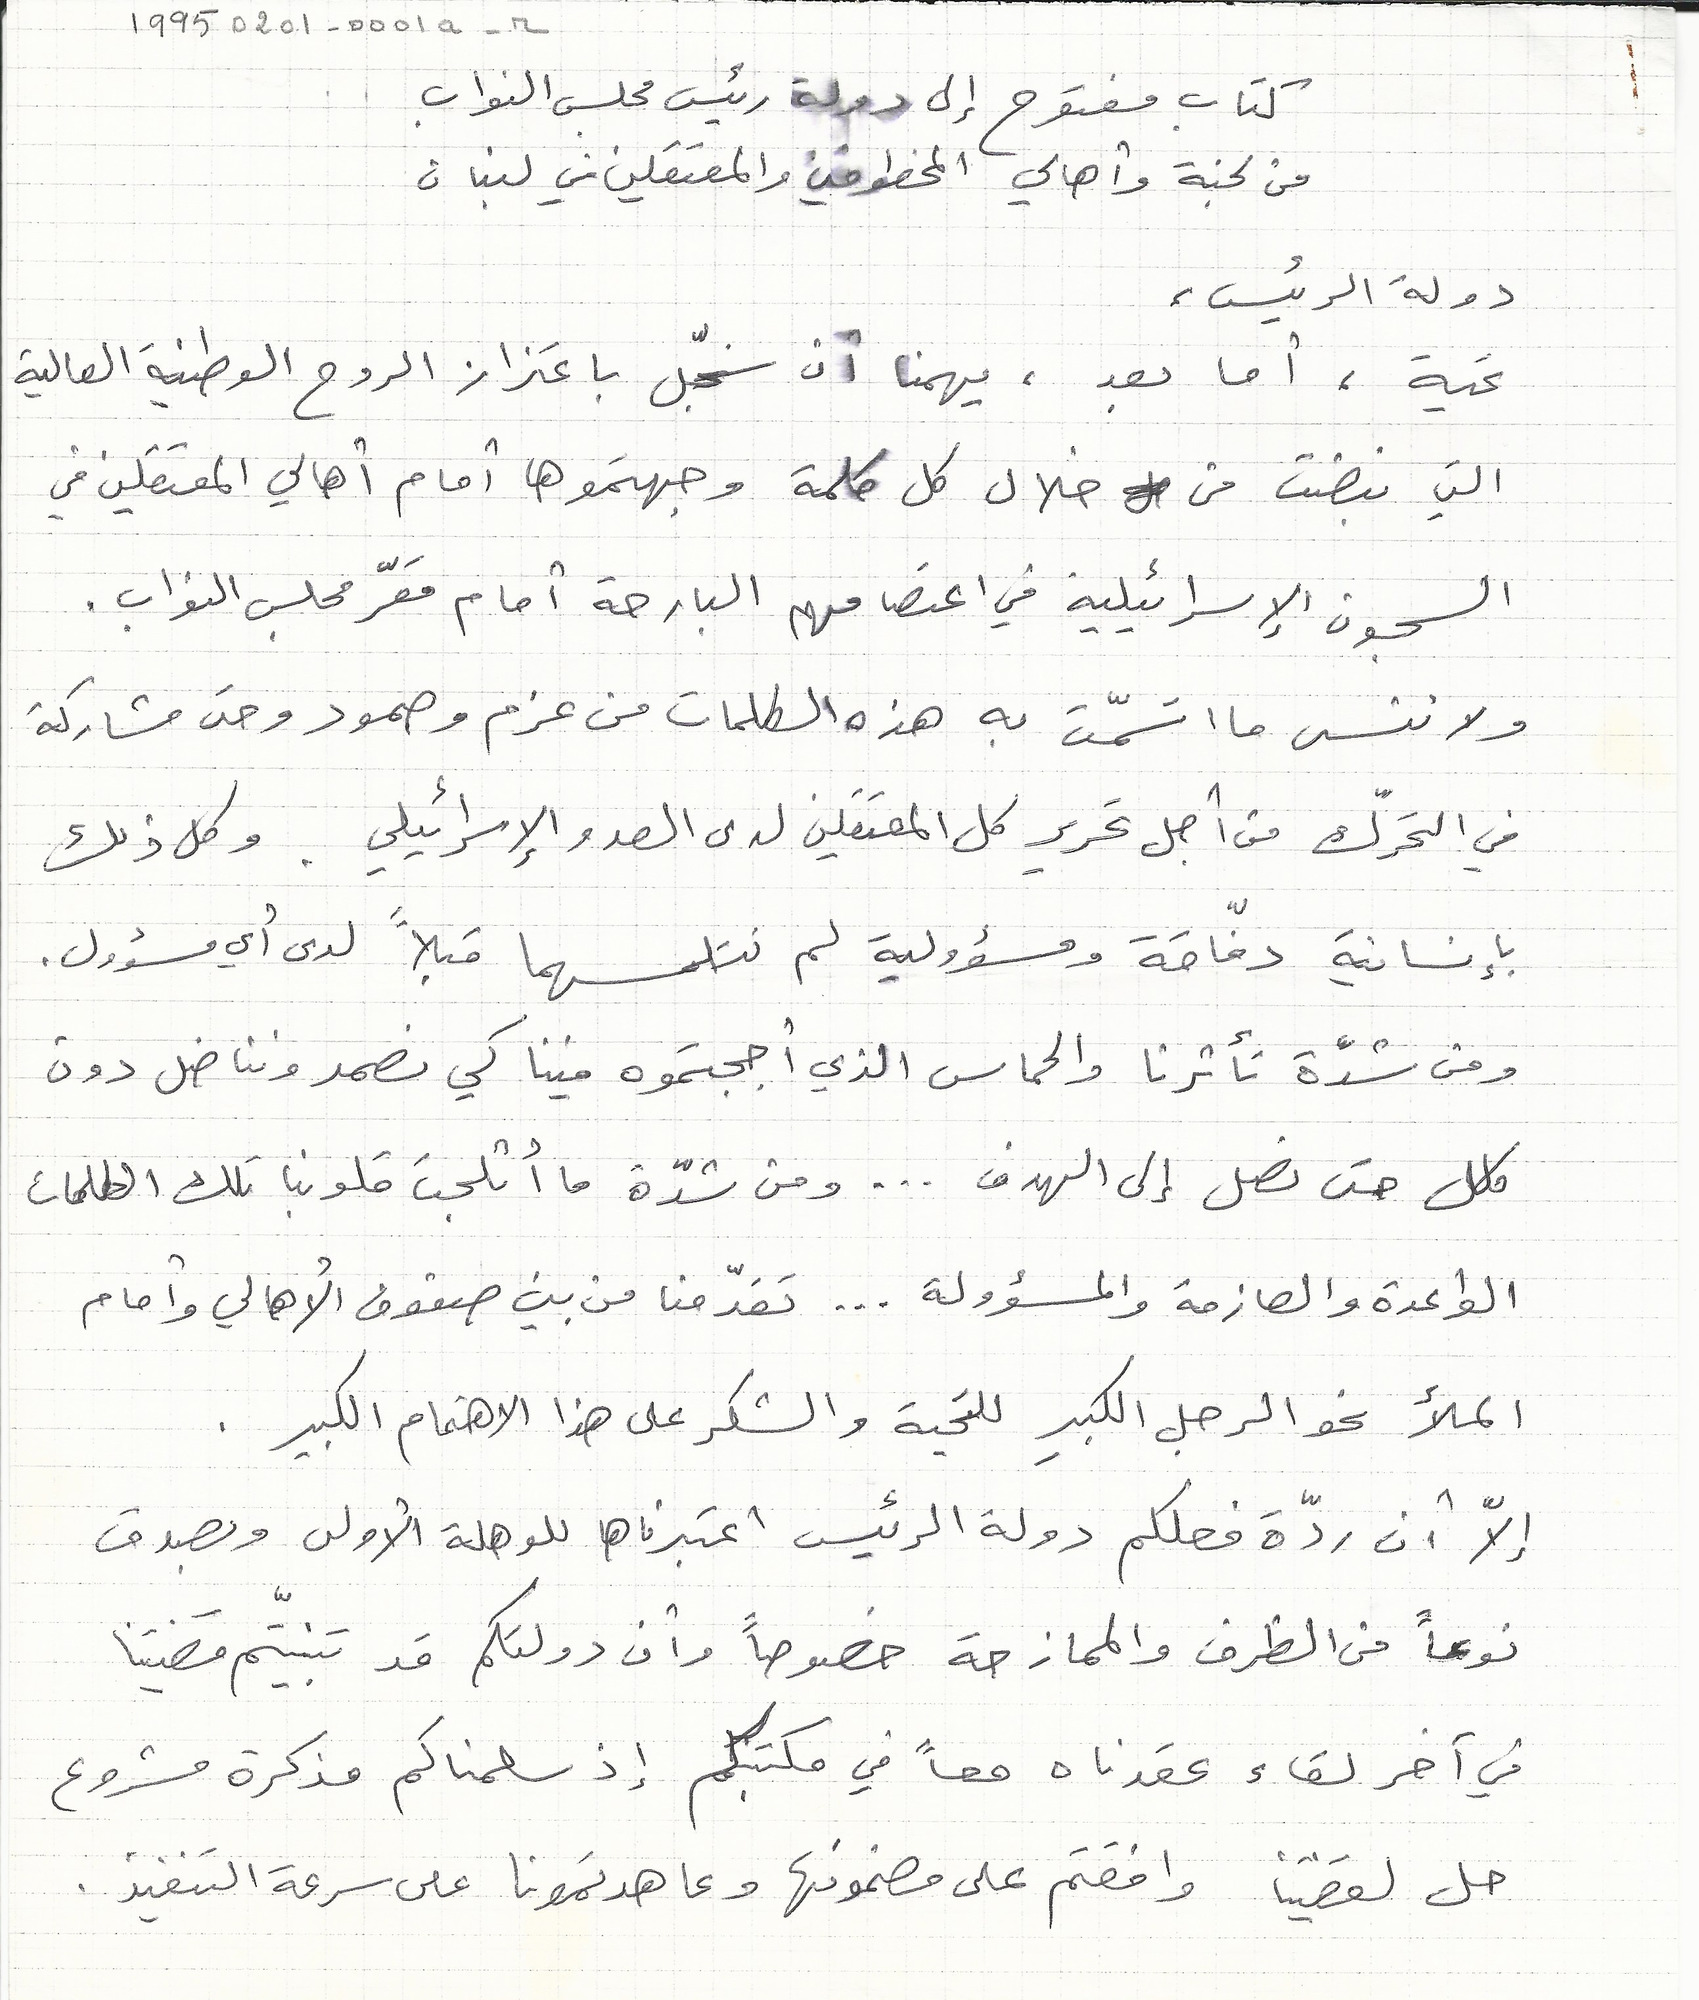 19950201-0001a-r
كتاب مفتوح إلى دولة رئيس مجلس النواب
من لجنة وأهالي المخطوفين والمعتقلين في لبنان
دولة الرئيس،
تحية ، أما بعد ، يهمنا أن نسجّل باعتزاز الروح الوطنية العالية
التي نبضت من خلال كل كلمة وجهتموها أمام أهالي المعتقلين في
السجون الإسرائيلية في اعتصامهم البارحة أمام مقرّ مجلس النواب .
ولا ننسى ما اتسمّت به هذه الكلمات من عزم وصمود وحتى مشاركة
في التحرّك من أجل تحرير كل المعتقلين لدى العدو الإسرائيلي . وكل ذلك
بإنسانية دفّاقة ومسؤولية لم نتلمسهما قبلاً لدى أي مسؤول .
ومن شدّة تأثرنا والحماس الذي أججتموه فينا كي نصمد ونناضل دون
كلل حتى نصل إلى الهدف ... ومن شدّة ما أثلجت قلوبنا تلك الكلمات
الواعدة والحازمة والمسؤولة ... تقدّمنا من بين صفوف الأهالي وأمام
الملأ نحو الرجل الكبير للتحية والشكر على هذا الاهتمام الكبير .
إلاّ أن ردّة فعلكم دولة الرئيس اعتبرناها للوهلة الأولى وبصدق
نوعاً من الظرف والممازحة خصوصاً وأن دولتكم قد تبنيّتم قضيتنا
في آخر لقاء عقدناه معاً في مكتبكم إذ سلمناكم مذكرة مشروع
حل لقضيتنا وافقتم على مضمونها وعاهدتمونا على سرعة التنفيذ .